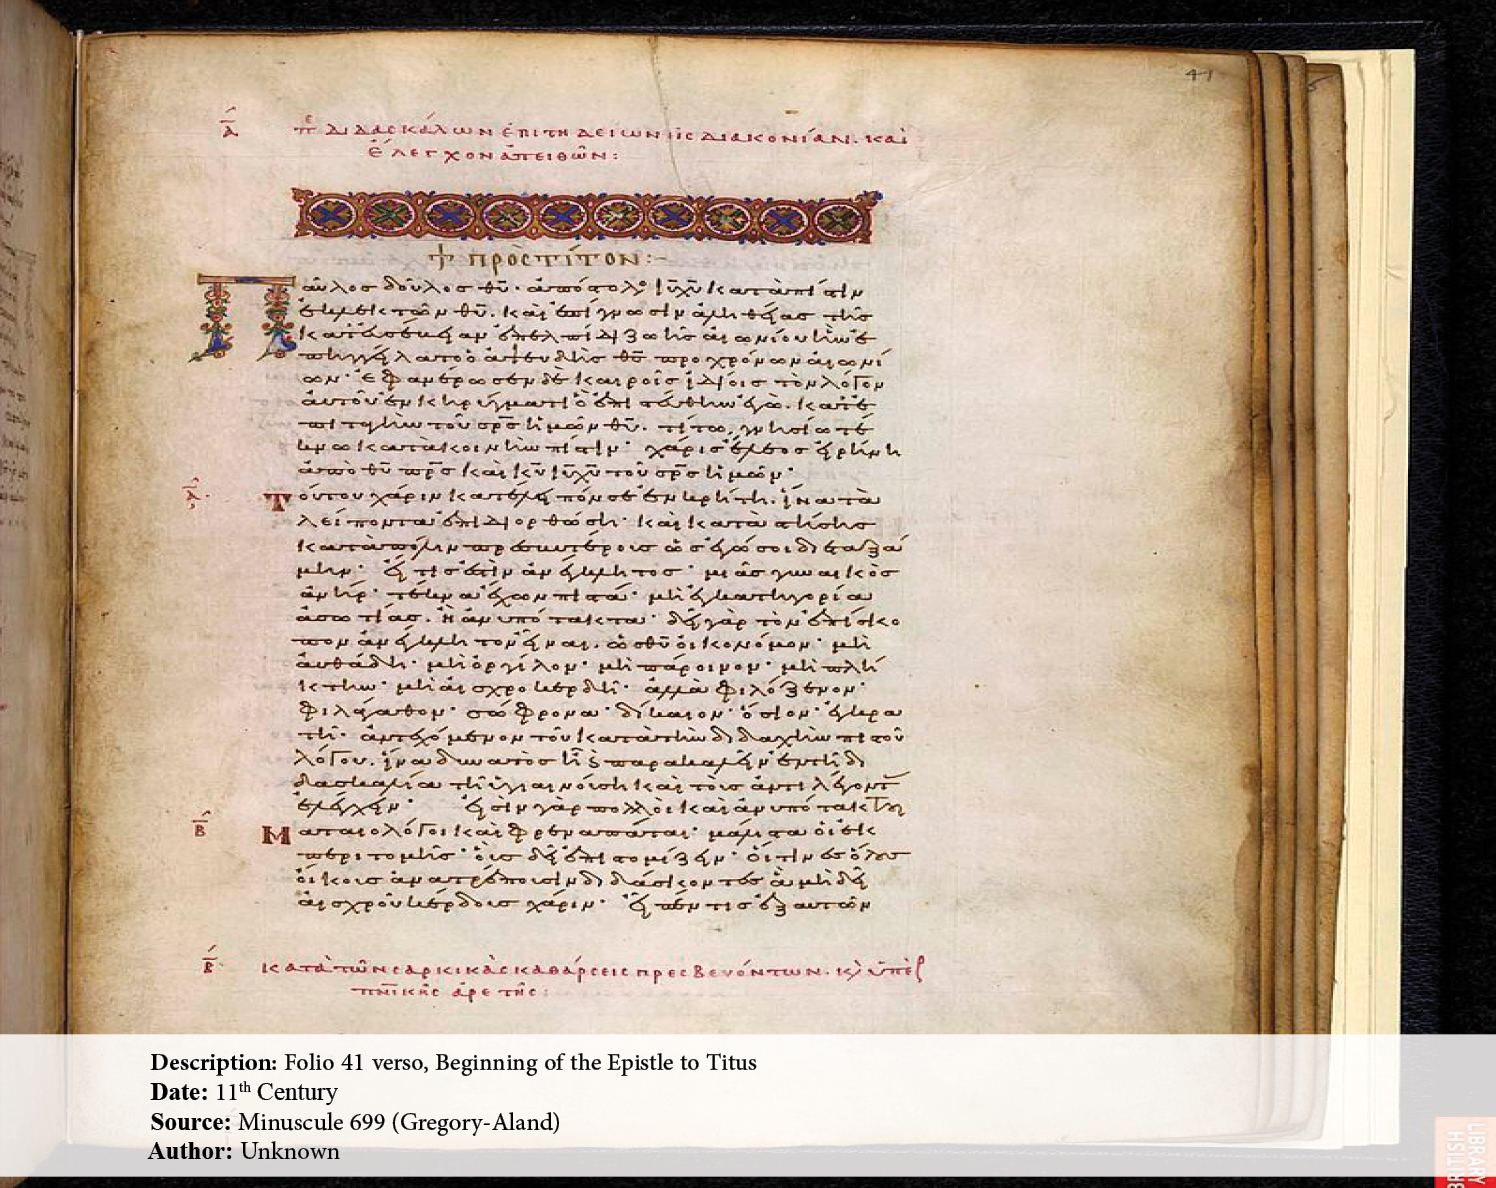 41
Α πε διδασκάλων ἐπιτηδείων εἰς διακονίαν. καὶ
ἔλεγχον ἀπειθῶν:
+ ΠΡΟΣ ΤΙΤΟΝ:-
Παῦλος δοῦλος θυ· ἀπόστολος ιυ χυ κατὰ πίστιν
ἐκλεκτῶν θυ. καὶ ἐπίγνωσιν ἀληθείας τῆς
κατ' εὐσέβειαν ἐπ' ἐλπίδι ζωῆς αἰωνίου ἣν ἐ
πηγγείλατο ὁ ἀψευδὴς θς πρὸ χρόνων αἰωνί
ων· ἐφανέρωσεν δὲ καιροῖς ἰδίοις τὸν λόγον
αὐτοῦ ἐν κηρύγματι ὃ ἐπιστεύθην ἐγὼ. κατ' ἐ
πιταγὴν τοῦ σρς ἡμῶν θυ. τίτω, γνησίω τέ
κνω κατὰ κοινὴν πίστιν· χάρις ἔλεος εἰρήνη
ἀπὸ θυ πρς καὶ κυ ιυ χυ τοῦ σρς ἡμῶν·
Α Τούτου χάριν κατέλειπόν σε ἐν κρήτη. ἵνα τὰ
λείποντα ἐπιδιορθώση· καὶ καταστήσης
κατὰ πόλιν πρεσβυτέρους ὡς ἐγώ σοι διεταξά
μην· εἴ τις ἐστὶν ἀνέγκλητος· μιᾶς γυναικὸς
ἀνήρ· τέκνα ἔχων πιστά· μὴ ἐν κατηγορία
ἀσωτίας. ἢ ἀνυπότακτα· δεῖ γὰρ τὸν ἐπίσκο
πον ἀνέγκλητον εἶναι. ὡς θυ οἰκονόμον· μὴ
αὐθάδη· μὴ ὀργίλον· μὴ πάροινον· μὴ πλή
κτην· μὴ αἰσχροκερδῆ· ἀλλὰ φιλόξενον·
φιλάγαθον· σώφρονα· δίκαιον· ὅσιον· ἐγκρα
τῆ· ἀντεχόμενον τοῦ κατὰ τὴν διδαχὴν πιστοῦ
λόγου. ἵνα δυνατὸς ἦ καὶ παρακαλεῖν ἐν τῆ δι
δασκαλία τῆ ὑγιαινούση καὶ τοὺς ἀντιλέγοντ
ἐλέγχειν· εἰσὶν γὰρ πολλοὶ καὶ ἀνυπότακτοι
Β Ματαιολόγοι καὶ φρεναπάται· μάλιστα οἱ ἐκ
περιτομῆς· οὓς δεῖ ἐπιστομίζειν· οἵτινες ὅλους
οἴκους ἀνατρέπουσιν διδάσκοντες ἃ μὴ δεῖ
αἰσχροῦ κέρδους χάριν· εἶπέν τις ἐξ αὐτῶν
Β κατὰ τῶν σαρκικὰς καθάρσεις πρεσβευόντων. κὶ ὑπὲρ
πνικῆς ἀρετῆς:
Description: Folio 41 verso, Beginning of the Epistle to Titus
Date: 11th Century
Source: Minuscule 699 (Gregory-Aland)
Author: Unknown
LIBRARY
BRITISH